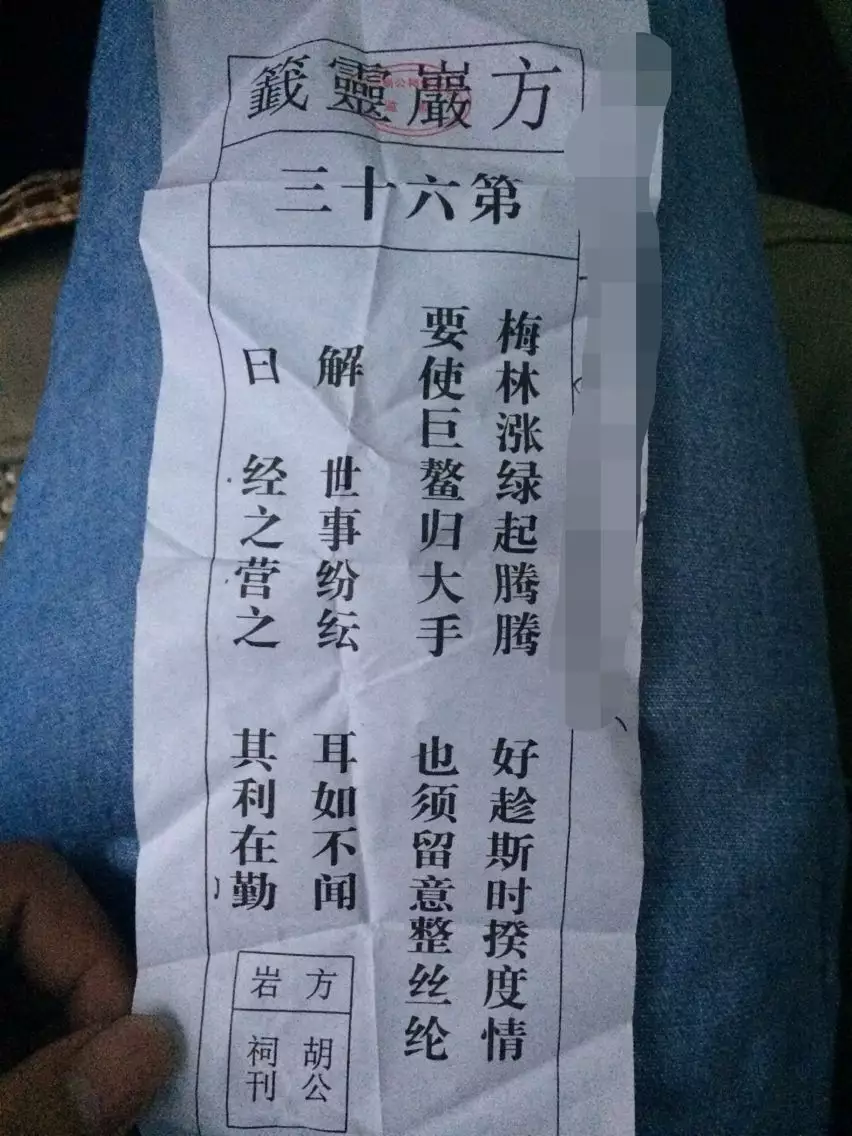 方巖靈籤
第六十三
梅林涨绿起腾腾 好趁斯时揆度情
要使巨鳌归大手 也须留意整丝纶
解 世事纷纭 耳如不闻
曰 经之营之 其利在勤
方岩
胡公祠刊